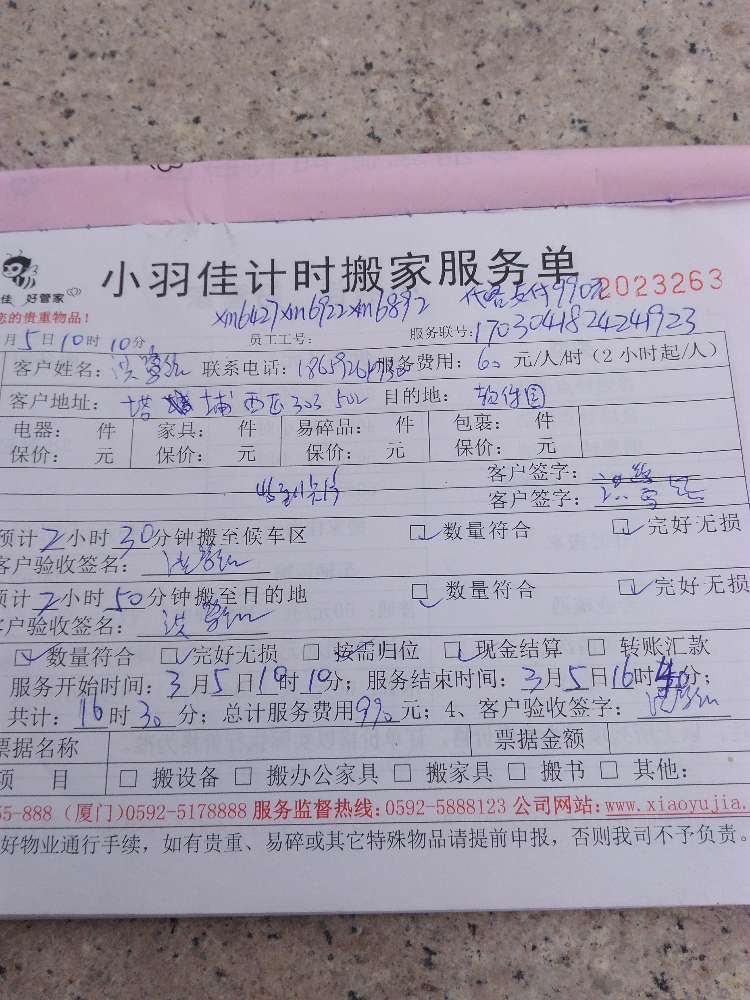 佳 好管家
小羽佳计时搬家服务单
2023263
您的贵重物品!
xm6427 xm6922 xm6892
支付990元
月5日10时10分 员工工号: 服务联号:17030418242424923
客户姓名:洪 联系电话: 服务费用:60元/人/时(2小时起/人)
客户地址:塔埔西区303 502 目的地:软件园
电器: 件 家具: 件 易碎品: 件 包裹: 件
保价: 元 保价: 元 保价: 元 保价: 元
客户签字:
客户签字:
预计2小时30分钟搬至候车区 数量符合 完好无损
客户验收签名:
预计2小时50分钟搬至目的地 数量符合 完好无损
客户验收签名:
数量符合 完好无损 按需归位 现金结算 转账汇款
服务开始时间:3月5日10时10分;服务结束时间:3月5日16时40分;
共计:16时30分;总计服务费用990元;4、客户验收签字:
票据名称 票据金额
项 目 搬设备 搬办公家具 搬家具 搬书 其他:
55-888(厦门)0592-5178888 服务监督热线:0592-5888123 公司网站:www.xiaoyujia.
好物业通行手续,如有贵重、易碎或其它特殊物品请提前申报,否则我司不予负责。